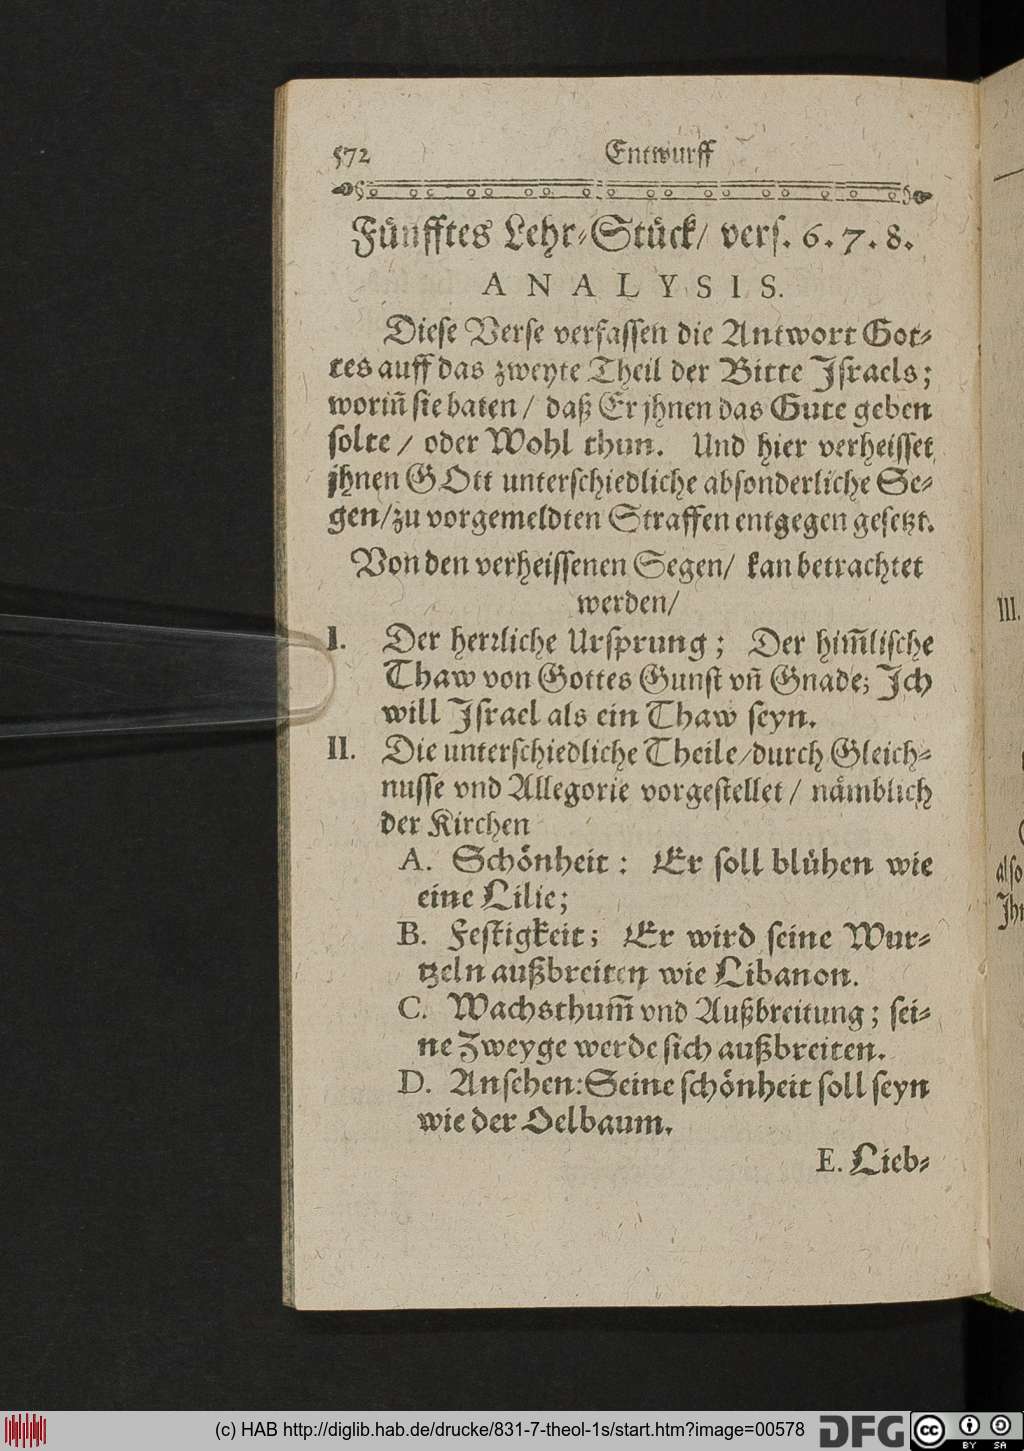 572 Entwurff
Fünfftes Lehr-Stück/ vers. 6. 7. 8.
ANALYSIS.
Diese Verse verfassen die Antwort Got-
tes auff das zweyte Theil der Bitte Israels;
woriñ sie baten/ daß Er jhnen das Gute geben
solte/ oder Wohl thun. Und hier verheisset
jhnen GOtt unterschiedliche absonderliche Se-
gen/zu vorgemeldten Straffen entgegen gesetzt.
Von den verheissenen Segen/ kan betrachtet
werden/
I. Der herrliche Ursprung; Der him̃lische
Thaw von Gottes Gunst vñ Gnade; Ich
will Israel als ein Thaw seyn.
II. Die unterschiedliche Theile/durch Gleich-
nusse vnd Allegorie vorgestellet/ nämblich
der Kirchen
A. Schönheit: Er soll blühen wie
eine Lilie;
B. Festigkeit; Er wird seine Wur-
tzeln außbreiten wie Libanon.
C. Wachsthum̃ vnd Außbreitung; sei-
ne Zweyge werde sich außbreiten.
D. Ansehen: Seine schönheit soll seyn
wie der Oelbaum.
E. Lieb-
III.
also
(c) HAB http://diglib.hab.de/drucke/831-7-theol-1s/start.htm?image=00578
DFG
cc BY SA